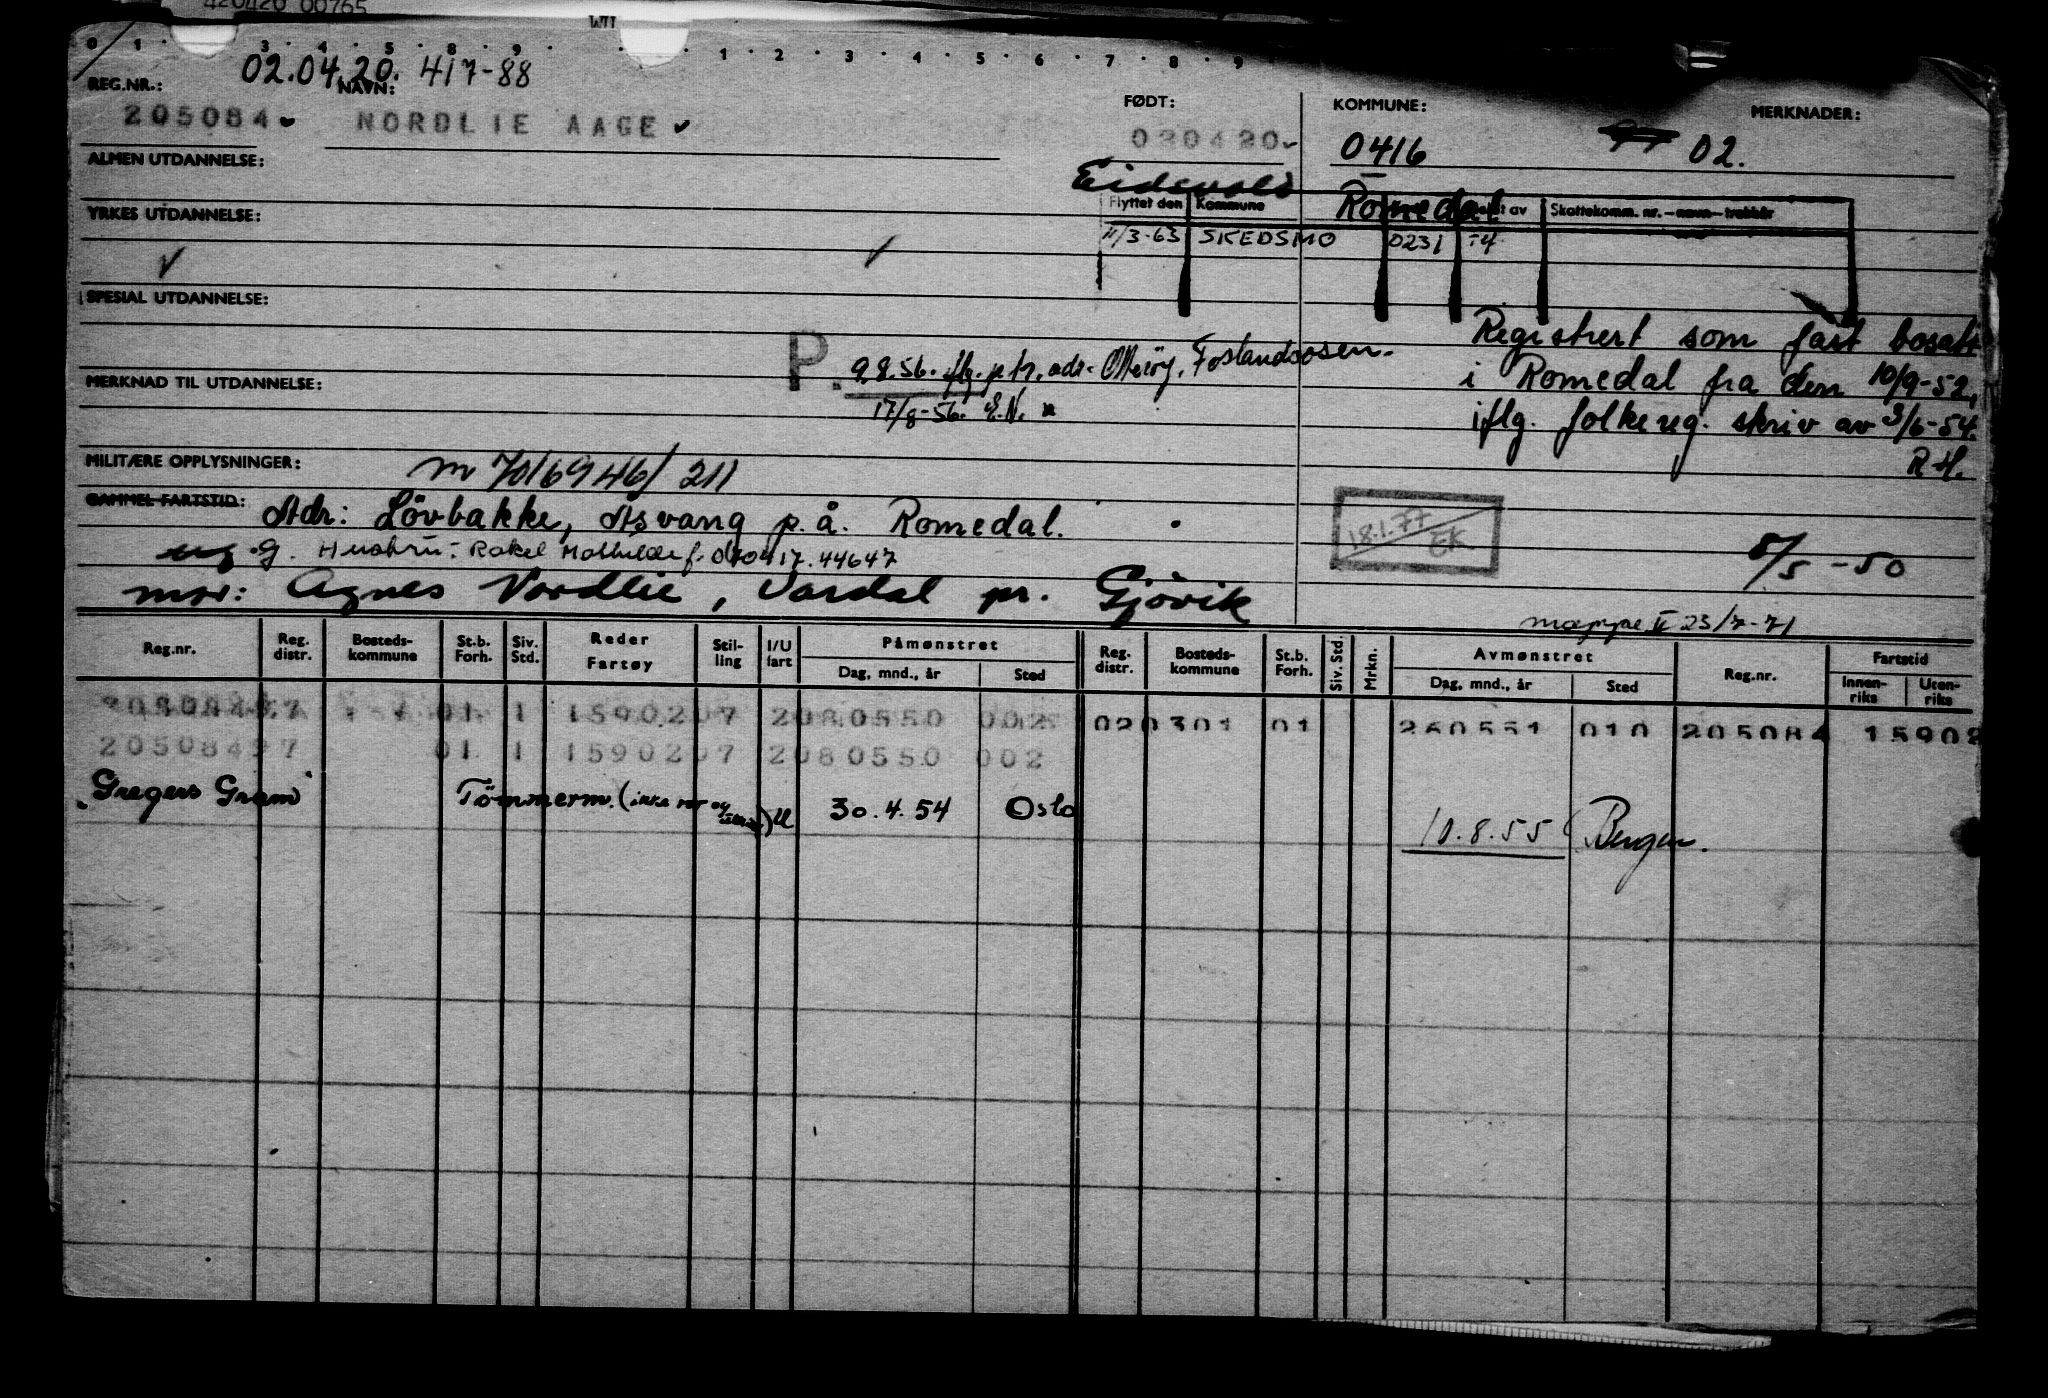 420420 00765
WTL
0 1 3 4 5 8 9 1 2 3 4 5 6 7 8 9
02.04.20. 417-88
REG.NR.: NAVN: FØDT: KOMMUNE: MERKNADER:
205084 NORDLIE AAGE 020420 0416 02.
ALMEN UTDANNELSE:
Eidsvold Romedal
Flyttet den Kommune t av Skattekomm. nr. – navn – trekkår
YRKES UTDANNELSE:
11/3-63 SKEDSMO 0231
SPESIAL UTDANNELSE:
Registrert som fast bosatt
P. 9.8.56. flg. p tr. adr. Otterøy, Fostandsosen.
i Romedal fra den 10/9-52,
MERKNAD TIL UTDANNELSE:
17/8-56. E.N.
iflg. folkereg. skriv av 3/6-54.
R.H.
MILITÆRE OPPLYSNINGER: m 7016946/211
GAMMEL FARTSTID: Adr: Lövbakke, Åsvang p.å. Romedal.
18.1.77 EK
ug. g. Hustru: Rakel Mathilde f. 070417.44647
8/5-50
mor: Agnes Nordlie, Vardal pr. Gjövik
mappe II 23/7-71
Reg.nr. Reg. distr. Bosteds-kommune St.b. Forh. Siv. Std. Reder Fartøy Stil-ling I/U fart Påmønstret Dag, mnd., år Sted Reg. distr. Bosteds-kommune St.b. Forh. Siv. Std. Mrkn. Avmønstret Dag, mnd., år Sted Reg.nr. Fartstid Innen-riks Uten-riks
20508497 01 1 1590207 2080550 002 020301 01 260551 010 205084 15902
20508497 01 1 1590207 2080550 002
Gregers Gram Tömmerm. U 30.4.54 Oslo 10.8.55 Bergen.